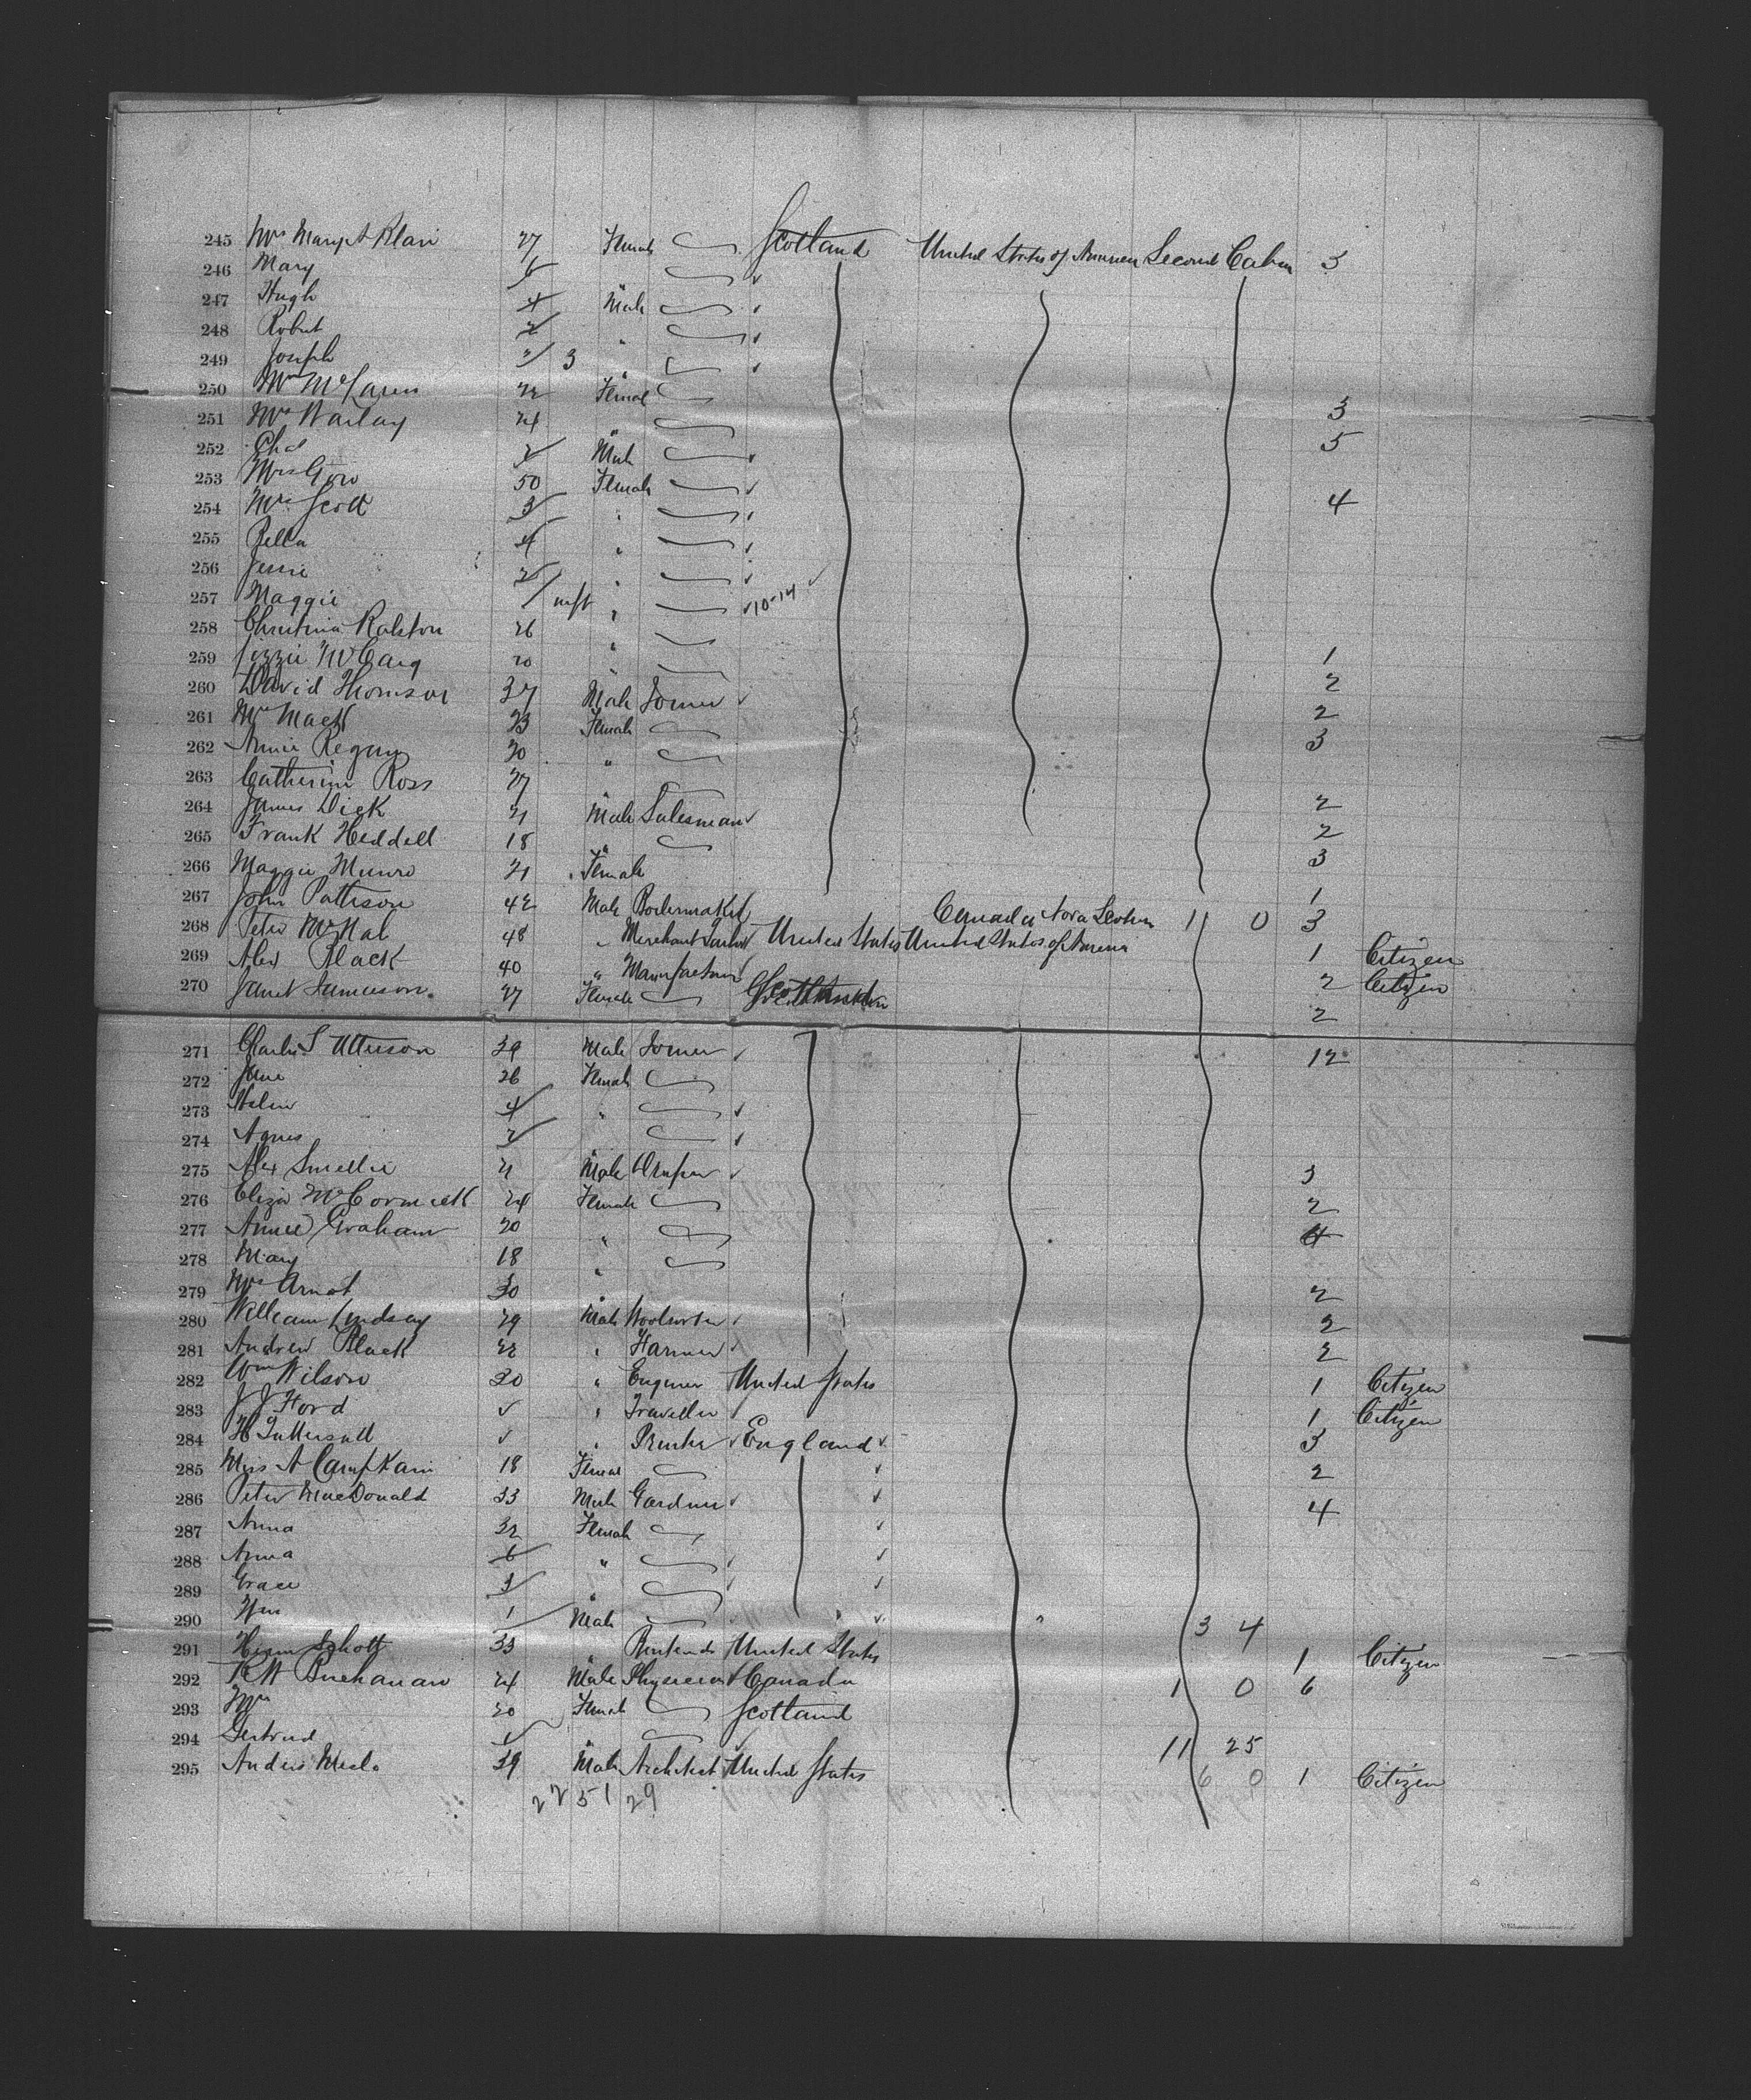 245 Mrs Mary A Blair 27 Female Scotland United States of America Second Cabin 3
246 Mary 6 "
247 Hugh 4 Male
248 Robert 2 "
249 Joseph 3 "
250 Mrs McLaren 22 Female 3
251 Mrs 24 " 5
252 Chas 2 Male
253 Mrs Gow 50 Female 4
254 Mrs Scott 3 "
255 Bella 4 "
256 Jessie 2 "
257 Maggie inft " 10-14
258 Christina Ralston 26 " 1
259 Lizzie McCaig 20 " 2
260 David Thomson 37 Male Joiner 2
261 Mrs Mack 23 Female 3
262 Annie 20 "
263 Catherine Ross 27 " 2
264 James Dick 21 Male Salesman 2
265 Frank Heddell 18 " 3
266 Maggie Munro 21 Female 1
267 John Pattison 42 Male Boilermaker Canada Nova Scotia 11 0 3
268 Peter 48 " Merchant Tailor United States United States of America 1 Citizen
269 Alex Black 40 " Manufacturer 2 Citizen
270 Janet Jamieson 27 Female 2
271 Charles S Utterson 39 Male Joiner 12
272 Jane 26 Female
273 Helen 4 "
274 Agnes 2 "
275 Alex Smellie 21 Male Draper 3
276 Eliza McCormick 24 Female 2
277 Annie Graham 20 " 4
278 Mary 18 "
279 Mrs Arnot 30 " 2
280 William Lindsay 29 Male 2
281 Andrew Black 22 " Farmer 2
282 Wm Wilson 30 " Engineer United States 1 Citizen
283 J J Ford " Traveller 1 Citizen
284 H Tattersall " Printer England 3
285 Miss A 18 Female 2
286 Peter MacDonald 33 Male Gardner 4
287 Anna 32 Female
288 Anna 6 "
289 Grace 3 "
290 Wm 1 Male 3 4
291 Schott 33 " United States 1 Citizen
292 Buchanan 24 Male Physician Canada 1 0 6
293 Mrs 20 Female Scotland
294 Gertrud " 11 25
295 39 Male Architect United States 6 0 1 Citizen
22 51 29